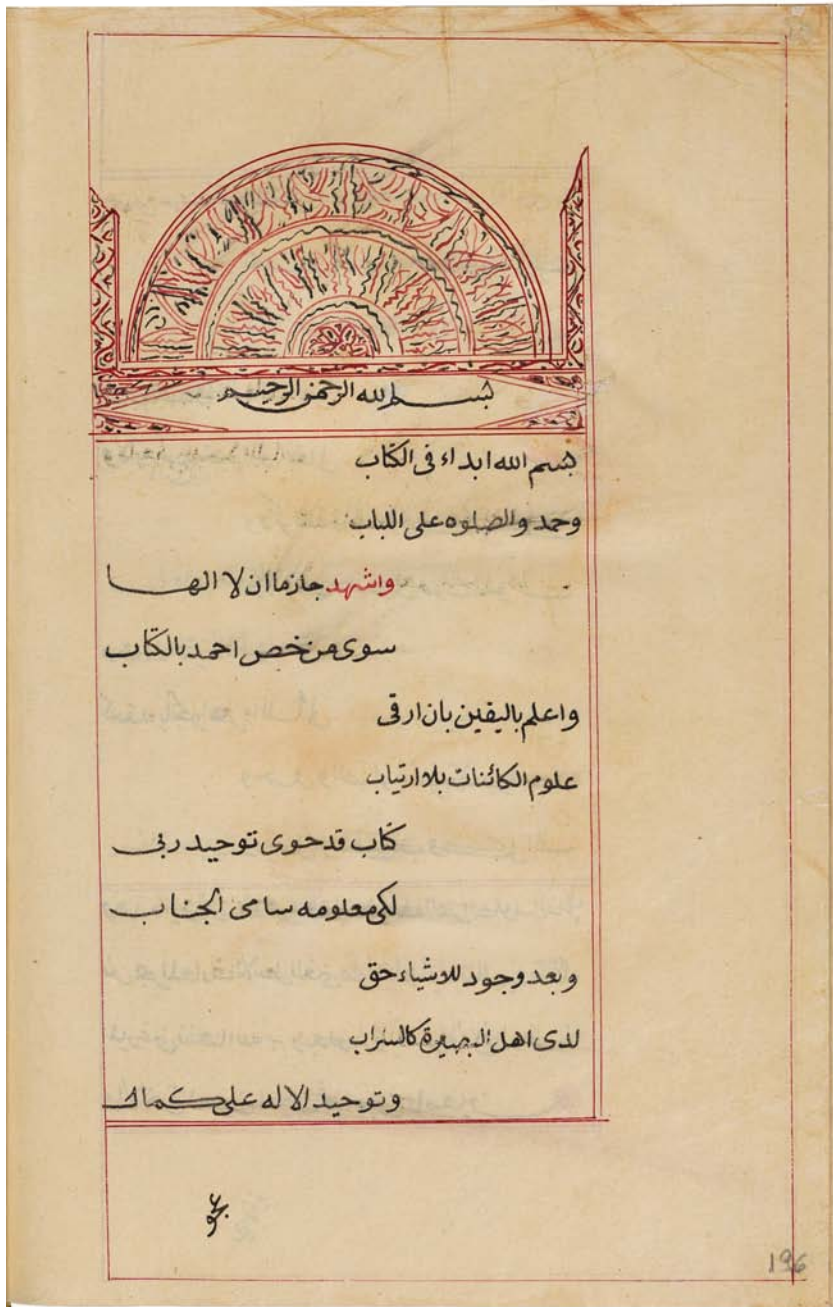 بسم الله الرحمن الرحيم
بسم الله ابداء فى الكتاب
وحمد والصلوه على اللباب
واشهد جازما ان لا الها
سوى من خص احمد بالكتاب
واعلم باليقين بان ارقى
علوم الكائنات بلا ارتياب
كتاب قد حوى توحيد ربى
لكى معلومه سامى الجناب
وبعد وجود للاشياء حق
لدى اهل البصيرة كالسراب
وتوحيد الاله على كمال
196